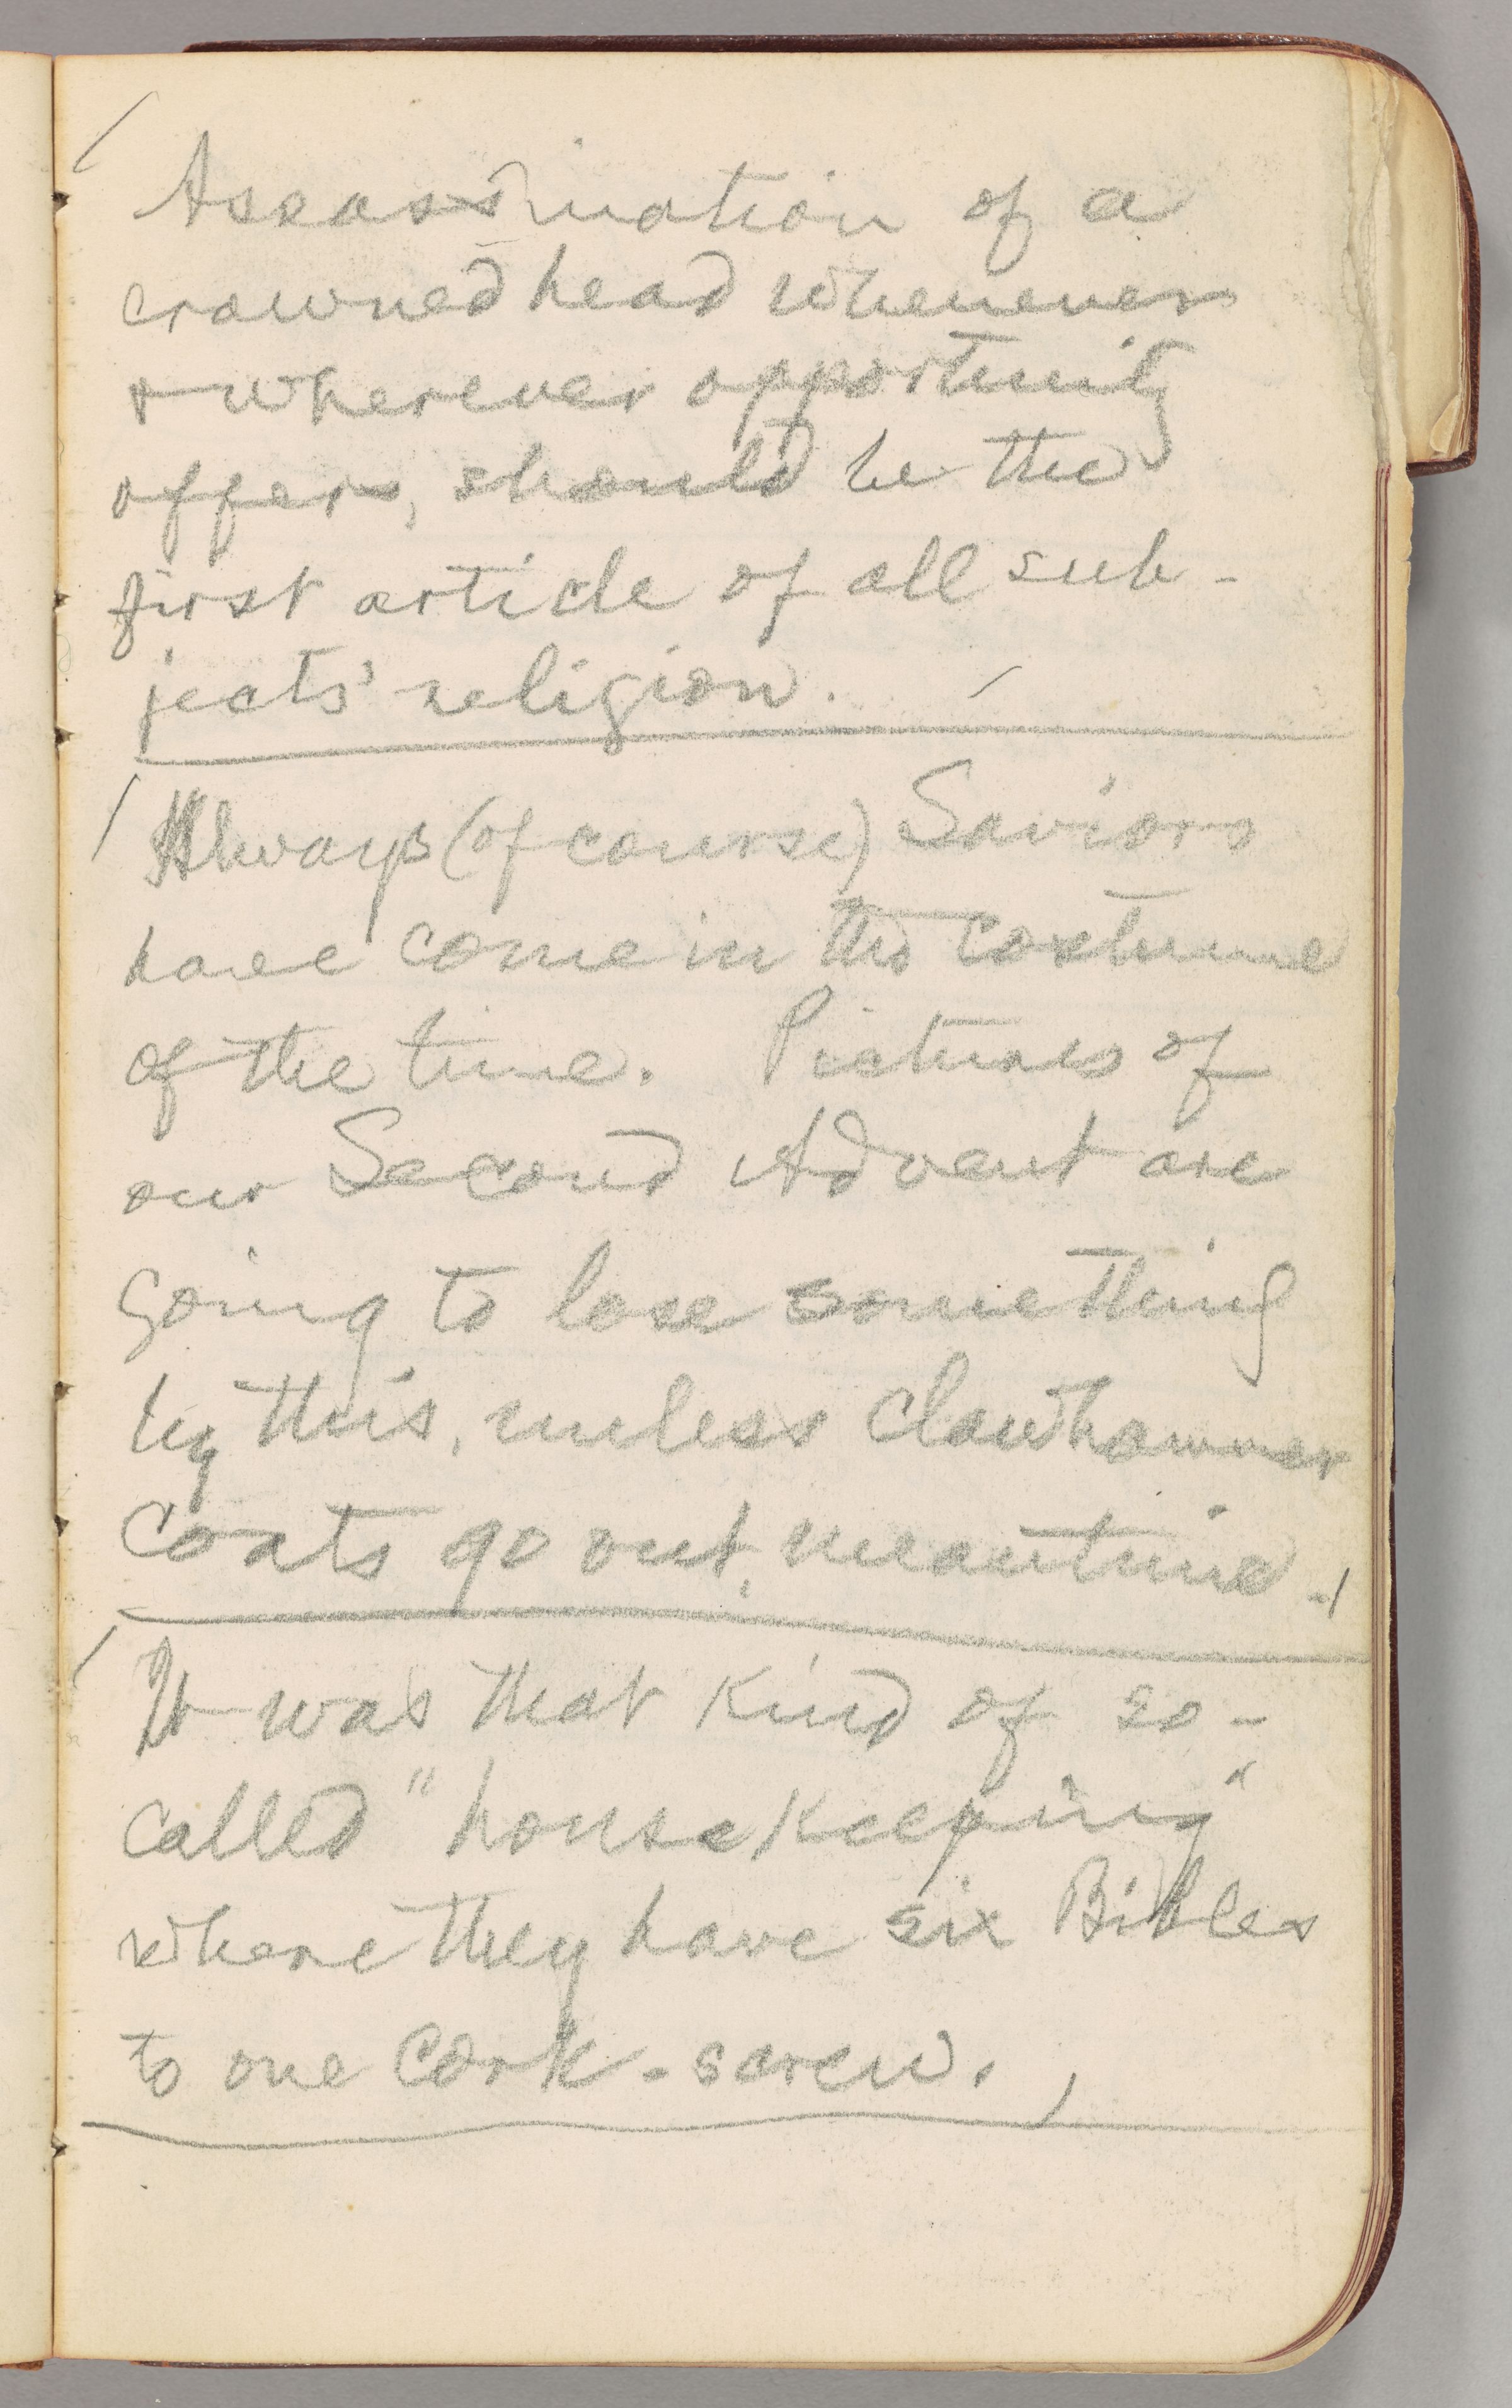 Assassination of a
crowned head whenever
& wherever opportunity
offers, should be the
first article of all sub-
jects' religion.
Always (of course) Saviors
have come in the costume
of the time. Pictures of
our Second Advent are
going to lose something
by this, unless clawhammer
coats go out, meantime.
It was that kind of so-
called "housekeeping"
where they have six Bibles
to one cork-screw.